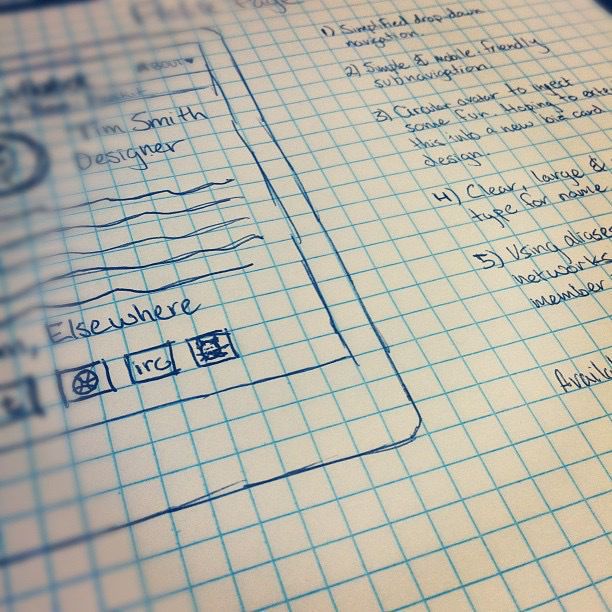 Page
About
Tim Smith
Designer
Elsewhere
irc
1) Simplified drop-down
navigation
2) Simple & mobile friendly
subnavigation
3) Circular avatar to inject
some fun. Hoping to
this into a new biz card
design
4) Clear, large &
type for name
5) Using aliases
networks
member